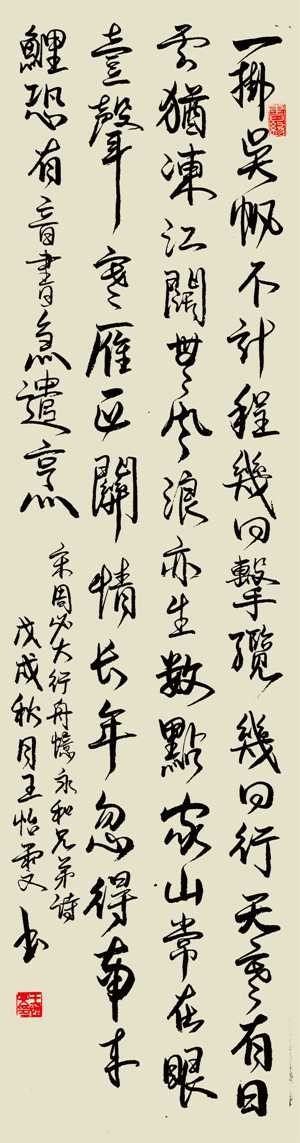 一掛吳帆不計程幾回擊纜幾回行天寒有日
雲猶凍江闊無風浪亦生數點家山常在眼
壹聲寒雁正關情長年忽得南來
鯉恐有音書急遣烹
宋周必大行舟憶永和兄弟詩
戊戌秋月王怡雯书